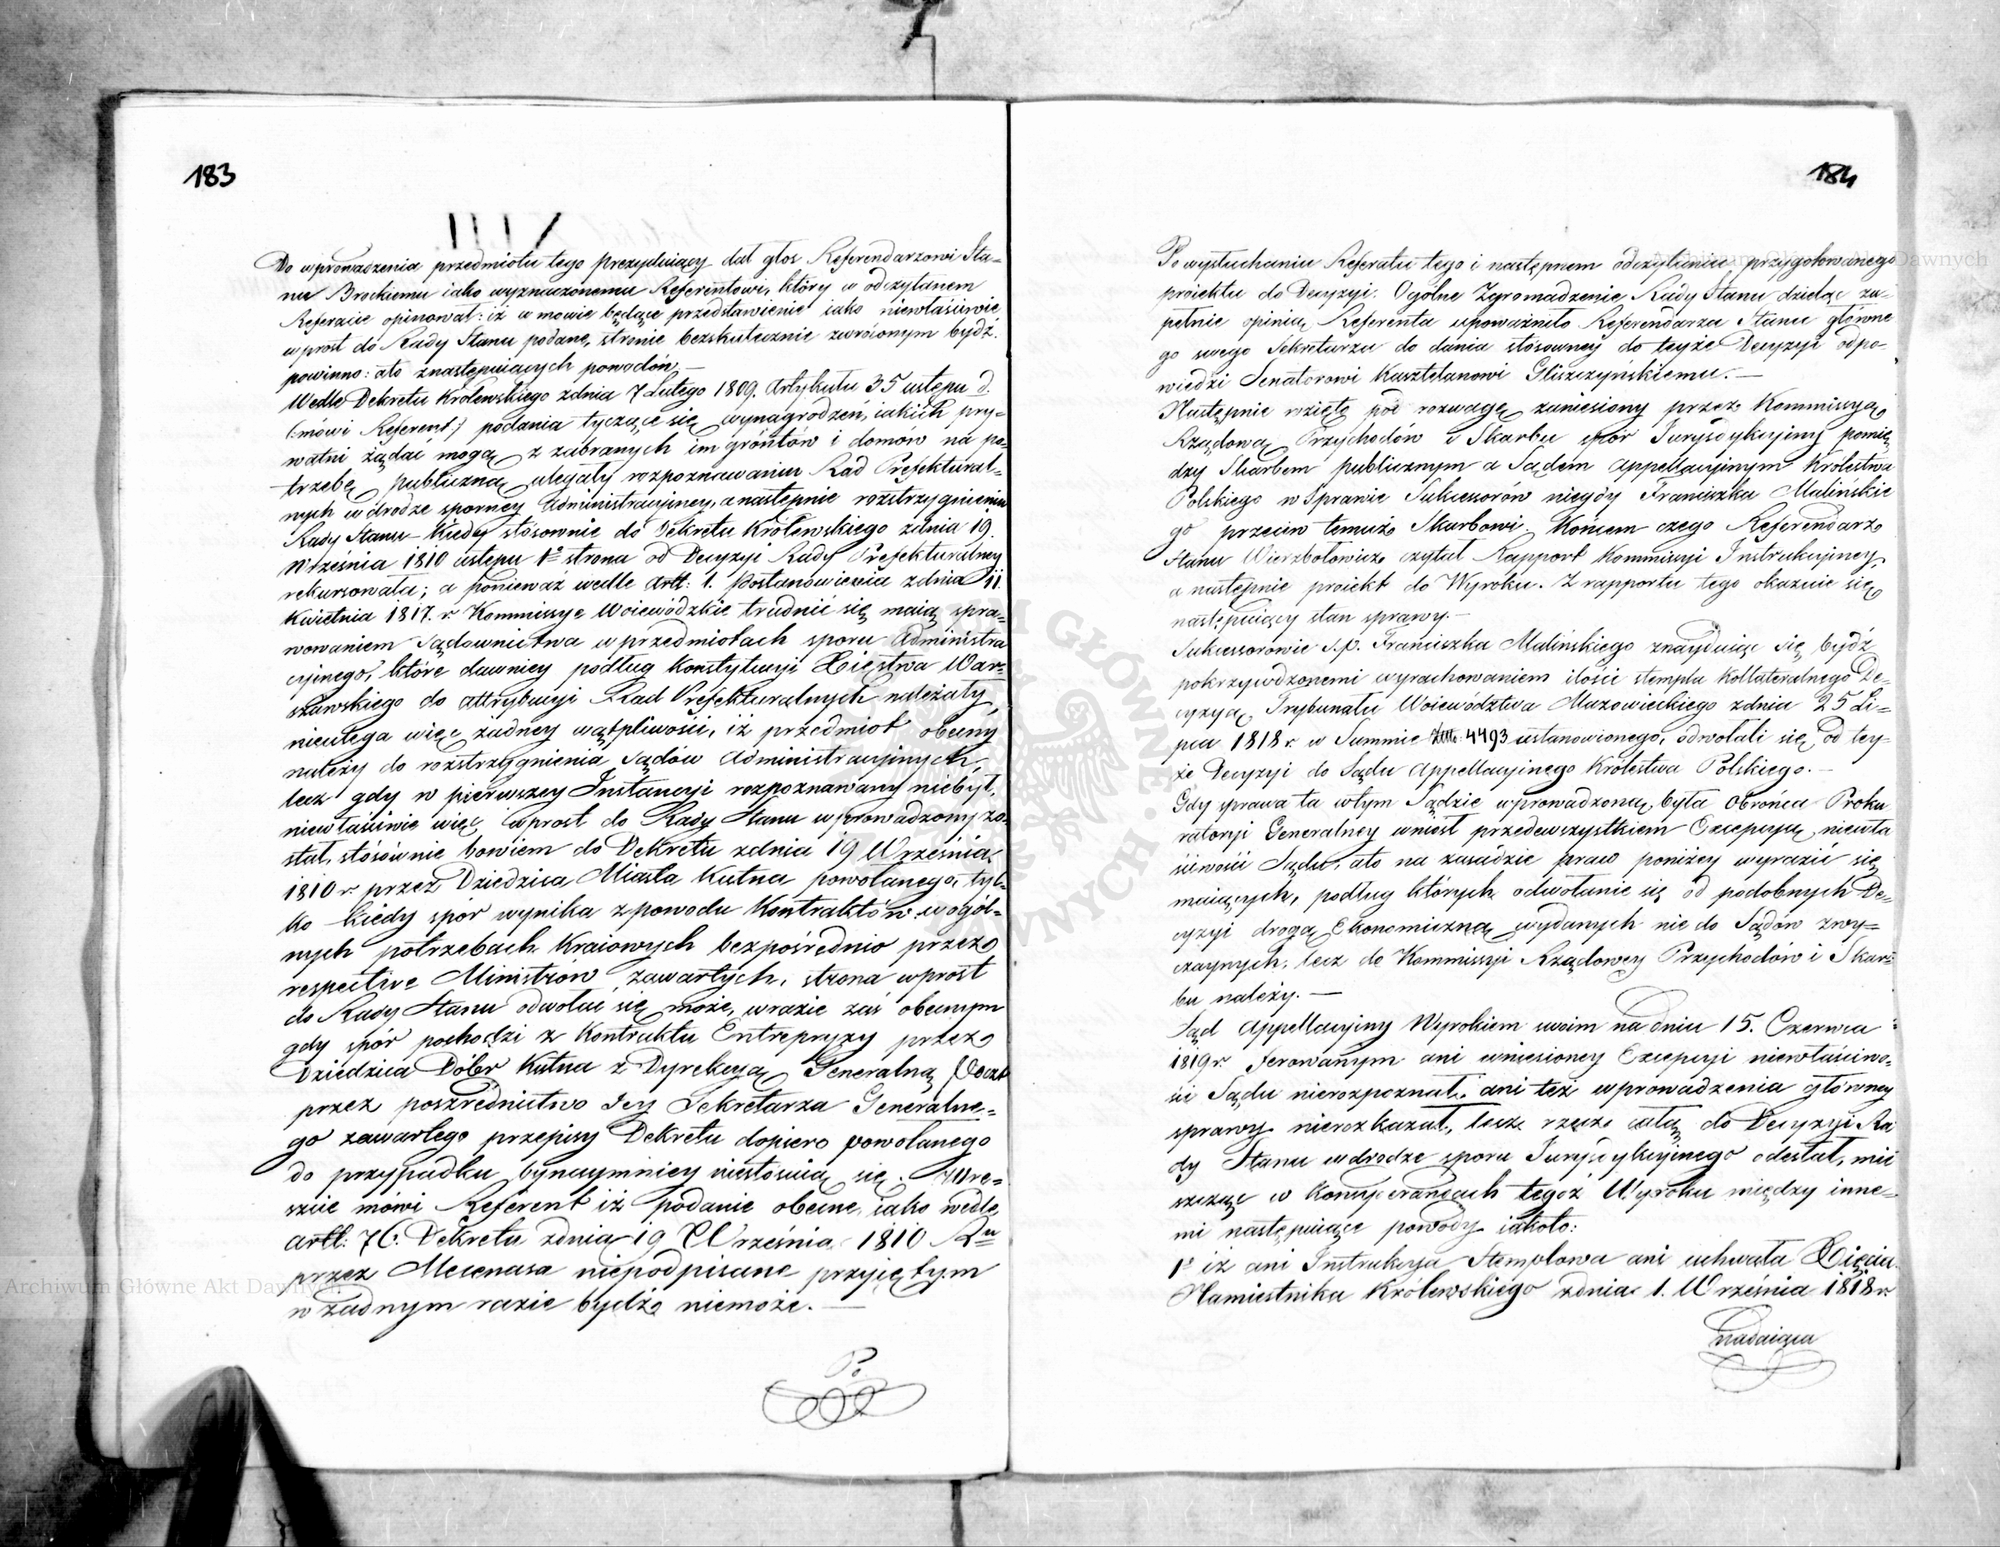 183
Do wprowadzenia przedmiotu tego Prezyduiący dał głos Referendarzowi Sta-
nu Brockiemu iako wyznaczonemu Referentowi, który w odczytanem
Referacie opinował: iż w mowie będące przedstawienie iako niewłaściwie
wprost do Rady Stanu podane, stronie bezskutecznie zwróconym bydź
powinno: a to z następuiących powodów. —
Wedle Dekretu Królewskiego z dnia 7 Lutego 1809. Artykułu 35 ustępu d.
(mówi Referent) podania tyczące się wynagrodzeń, iakich pry-
watni żądać mogą z zabranych im gróntów i domów na po-
trzebę publiczną ulegały rozpoznawaniu Rad Prefektural-
nych w drodze sporney Administracyiney, a następnie rozstrzygnieniu
Rady Stanu. Kiedy stósownie do Dekretu Królewskiego z dnia 19.
Września 1810 ustępu 1º strona od Decyzyi Rady Prefekturalney
rekursowała; a ponieważ wedle artt: 1. Postanowienia z dnia 11
Kwietnia 1817. r. Kommissye Woiewódzkie trudnić się maią spra-
wowaniem Sądownictwa w przedmiotach sporu Administra
cyinego, które dawniey podług Konstytucyi Xięstwa War-
szawskiego do attrybucyi Rad Prefekturalnych należały,
nieulega więc żadney wątpliwości, iż przedmiot obecny
należy do rozstrzygnienia Sądów Administracyinych,
lecz gdy w pierwszey Instancyi rozpoznawany niebył,
niewłaściwie więc wprost do Rady Stanu wprowadzony zo-
stał, stósownie bowiem do Dekretu z dnia 19 Września
1810 r. przez Dziedzica Miasta Kutna powołanego, tyl-
ko kiedy spór wynika z powodu Kontraktów w ogól-
nych potrzebach Kraiowych bezpośrednio przez
respective Ministrów zawartych, strona wprost
do Rady Stanu odwołać się może, w razie zaś obecnym
gdy spór pochodzi z Kontraktu Entrepryzy przez
Dziedzica Dóbr Kutna z Dyrekcyą Generalną Poczt
przez pośrzednictwo Iey Sekretarza Generalne-
go zawartego przepisy Dekretu dopiero powołanego
do przypadku bynaymniey niestosuią się. Wre-
szcie mówi Referent iż podanie obecne, iako wedle
artt: 76. Dekretu z dnia 19 Września 1810 Ru
przez Mecenasa niepodpisane przyiętym
w żadnym razie bydź niemoże. —
Po
184
Po wysłuchaniu Referatu tego i następnem odczytaniu przygotowanego
proiektu do Decyzyi. Ogólne Zgromadzenie Rady Stanu dzieląc zu-
pełnie opinią Referenta upoważniło Referendarza Stanu główne
go swego Sekretarza do dania stósowney do teyże Decyzyi odpo-
wiedzi Senatorowi Kasztelanowi Gliszczynskiemu. —
Następnie wzięto pod rozwagę zaniesiony przez Kommissyą
Rządową Przychodów i Skarbu spór Jurysdykcyiny pomię
dzy Skarbem publicznym a Sądem Appellacyinym Królestwa
Polskiego w Sprawie Sukcessorów niegdy Franciszka Malińskie
go przeciw temuż Skarbowi. Koncem czego Referendarz
Stanu Wierzbołowicz czytał Rapport Kommissyi Instrukcyiney
a następnie proiekt do Wyroku. Z rapportu tego okazuie się
następuiący stan sprawy. —
Sukcessorowie s.p. Franciszka Malińskiego znayduiąc się bydź
pokrzywdzonemi wyrachowaniem ilości stemplu Kollateralnego De-
cyzyą Trybunału Woiewództwa Mazowieckiego z dnia 25 Li-
pca 1818 r. w Summie Złtt. 4493 ustanowionego, odwołali się od tey-
że Decyzyi do Sądu Appellacyinego Królestwa Polskiego. —
Gdy sprawa ta w tym Sądzie wprowadzoną była Obrońca Proku
ratoryi Generalney wniosł przedewszystkiem Excepcyą niewła
ściwości Sądu, a to na zasadzie praw poniżey wyrazić się
maiących, podług których odwołanie się od podobnych De-
cyzyi drogą Ekonomiczną wydanych nie do Sądów zwy-
czaynych, lecz do Kommissyi Rządowey Przychodów i Skar-
bu należy. —
Sąd Appellacyiny Wyrokiem swoim na dniu 15. Czerwca
1819 r. ferowanym ani wniesioney Excepcyi niewłaściwo-
ści Sądu nierozpoznał, ani też wprowadzenia główney
sprawy nierozkazał, lecz rzecz całą do Decyzyi Ra
dy Stanu w drodze sporu Jurysdykcyinego odesłał, mie
szcząc w Konsyderancyach tegoż Wyroku między inne-
mi następuiące powody iakoto:
1º iż ani Instrukcya Stemplowa ani uchwała Xięcia
Namiestnika Królewskiego z dnia 1. Września 1818 r.
nadaiąca
Archiwum Główne Akt Dawnych
Archiwum Główne Akt Dawnych